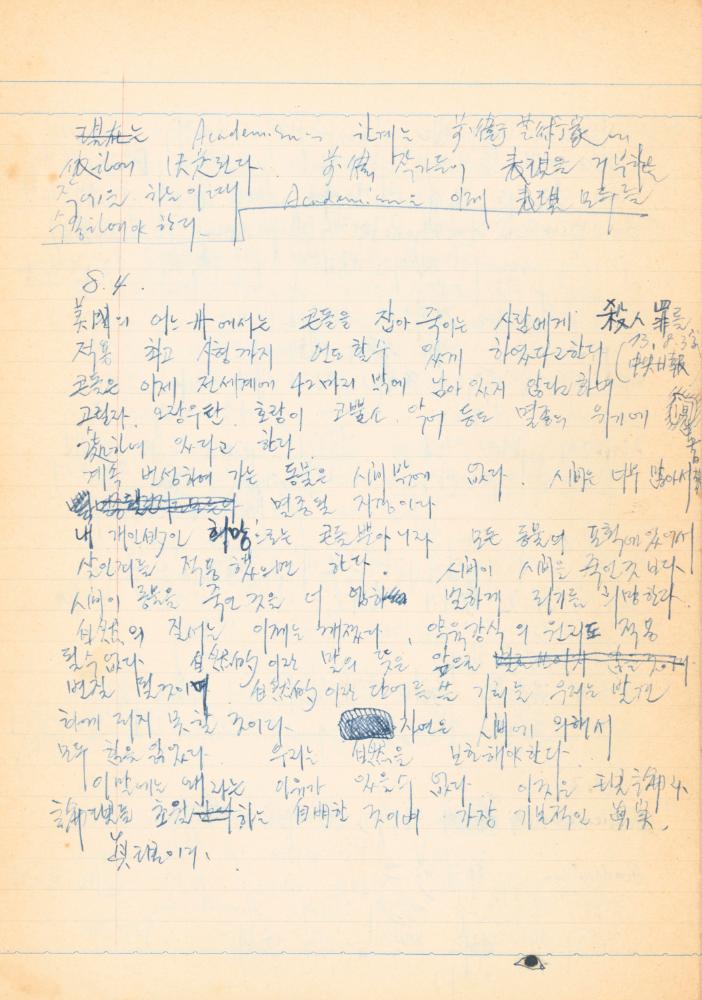 Academism의 한계는 前衛 芸術家에
依하여 前衛 작가들이 表現을 거부하는
하는 이때 Academism은 이제 表現 모두를
수용하여야 하다.
8. 4.
美国의 어느 에서는 콘돌을 잡아 죽이는 사람에게 殺人罪를
적용 최고 사형까지 언도할수 있게 하였다고한다 (73. 8. 3
中央日報
콘돌은 이제 전세계에 42마리 밖에 남아 있지 않다고 하며
고릴라. 오랑우탄. 호랑이 코뿔소. 악어 등도 멸종의 위기에
處하여 있다고 한다
계속 번성하여 가는 동물은 시비밖에 없다. 시비는 너무 많아서
멸종될 지경이다
내 개인的인 희망으로는 콘돌뿐아니라 모든 동물의 포획에있어서
살인죄를 적용했으면 한다. 시비이 시비을 죽인것 보다
시비이 동물을 죽인것은 더 벌하게 되기를 희망한다.
自然의 질서는 이제는 깨졌다. 약육강식의 원리도 적용
될수없다. 自然的이라 말의 뜻은 앞으로
변질 될것이며 自然的이라 단어를 쓸 기회는 우리는 발견
하게 되지 못할 것이다. 자연은 시비에 의해서
모두 힘을 잃었다. 우리는 自然을 보호해야한다.
이말에는 왜라는 이유가 있을수 없다. 이것은
초월하는 自明한 것이며 가장 기본적인 眞実,
이다.